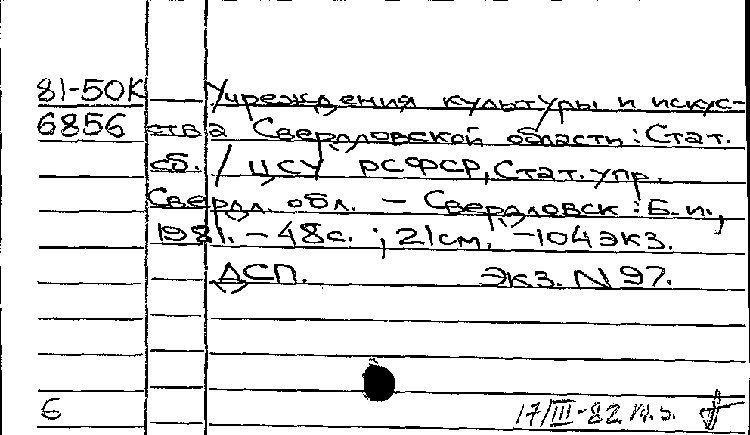 81-50К Учреждения культуры и искус-
6856 ства Свердловской области: Стат.
сб. / ЦСУ РСФСР, Стат. упр.
Свердл. обл. – Свердловск: Б.и.,
1981. – 48с. ; 21см. – 104 экз.
ДСП. Экз. N 97.
6 17/III-82